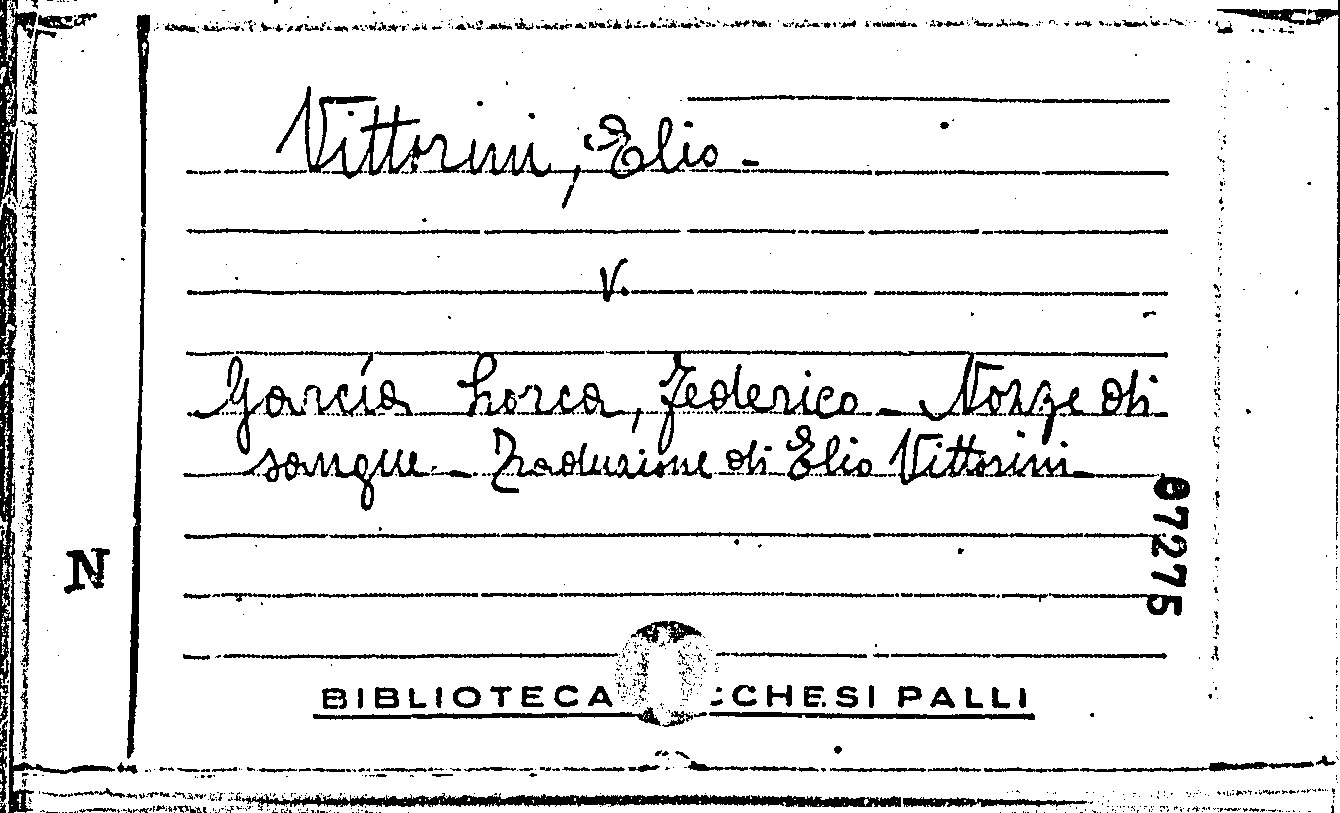 Vittorini, Elio -
V.
García Lorca, Federico - Nozze di
sangue - Traduzione di Elio Vittorini -
67275
N
BIBLIOTECA CCHESI PALLI